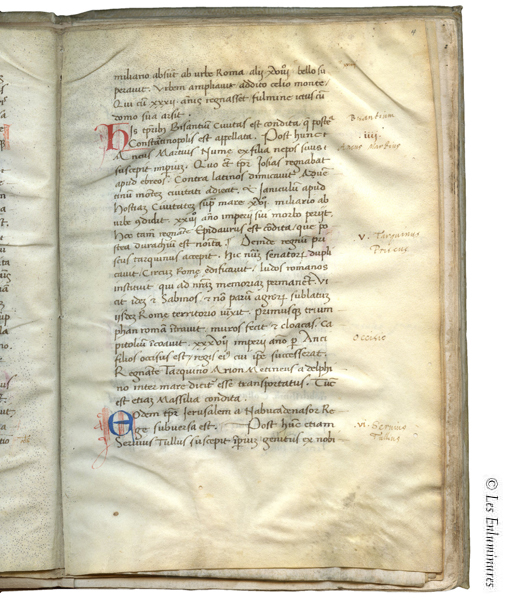 miliario absūt ab urbe Roma alij xviij bello su
peravit. Urbem ampliavit addito celio monte.
Qui cū xxxij. annis regnasset fulmine ictus cū
domo sua arsit.
His tpribus Bisantiū Civitas est condita q̄ postea
Constantinopolis est appellata. Post hunc
Ancus Martius Nume ex filia nepos suus
suscepit imperiū. Quo etiā tpr̄ Iosias regnabat
apud ebreos. Contra latinos dimicavit. Aven
tinū mōtem civitati adiecit, et Ianiculū apud
Hostiā Civitatem supra mare xvj. miliario ab
urbe cōdidit. xxiij anno imperij sui morbo perijt.
Hoc tam regnāte Epidaurus est cōdita, que po
stea durachiū est noīta. Deinde regnū pri
scus tarquinus accepit. Hic nūm senatorū dupli
cavit, Circū Rome edificavit, ludos romanos
instituit qui ad nrām memoriam permanēt. Vi
cit idem et Sabinos, et nō parū agrorū sublatū
ijsdem Rome territorio iūxit. primusque trium
phan romā ītravit. muros fecit et cloacas. Ca
pitoliū īcoavit. xxxvij imperij anno p̄ Anci
filios occisus est, regis ei cui ipse successerat.
Regnāte Tarquino Arion Metineus a delphi
no in mare dicit esse transportatus. Tūc
est etiā Massilia condita.
Eodem tpr̄ Ierusalem a Nabucadenasor Re
ge subversa est. Post hūc etiam
Servius Tullus suscepit īperiū genitus ex nobi
Bizantium
iiij
Ancus Martius
.v. Tarquinus
Priscus
Occisio
.vi. Servius
Tullius
© Les Enluminures